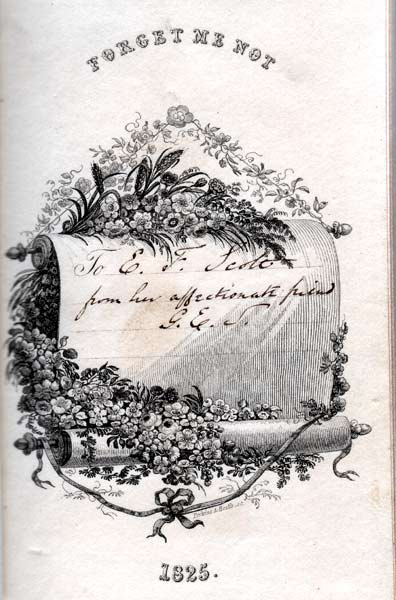 FORGET ME NOT
To E. F. Scott
from her affectionate friend
G. E. S.
Perkins & Heath, sc.
1825.